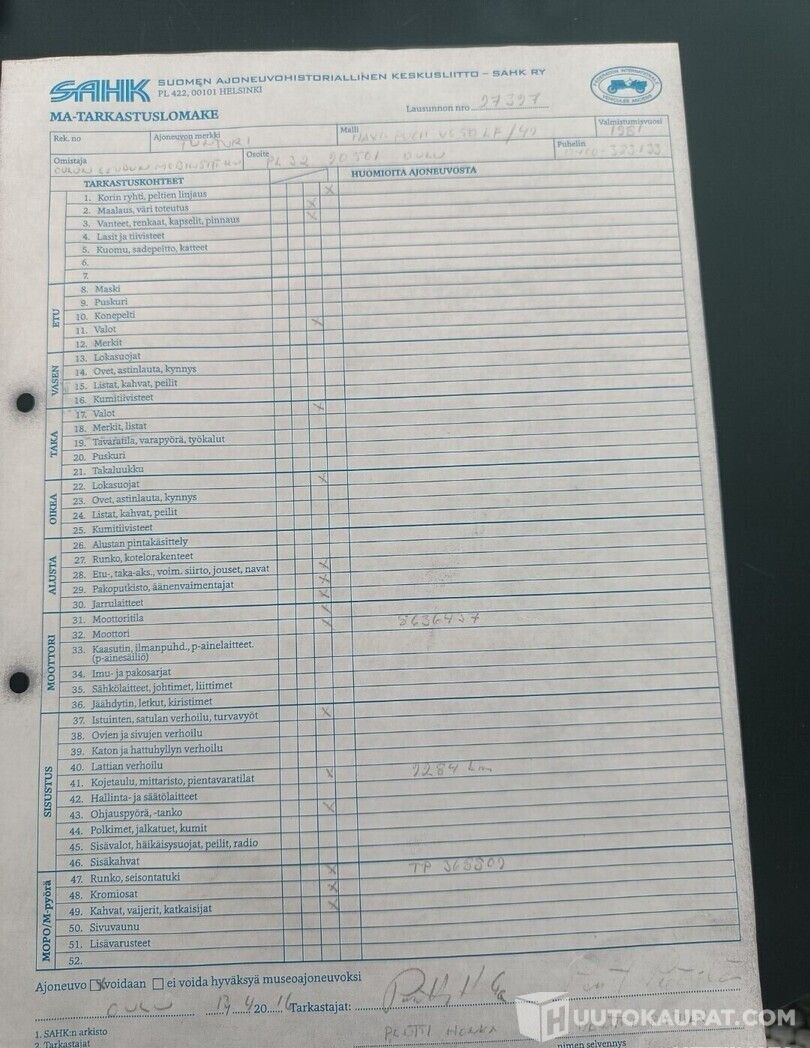 SAHK SUOMEN AJONEUVOHISTORIALLINEN KESKUSLIITTO – SAHK RY
PL 422, 00101 HELSINKI
FEDERATION INTERNATIONALE VEHICULES ANCIENS
MA-TARKASTUSLOMAKE
Lausunnon nro 27327
Rek. no
Ajoneuvon merkki
TUNTURI
Malli
Valmistumisvuosi
1981
Omistaja
Osoite
PL 32 90501 OULU
Puhelin
TARKASTUSKOHTEET
HUOMIOITA AJONEUVOSTA
1. Korin ryhti, peltien linjaus x
2. Maalaus, väri toteutus x
3. Vanteet, renkaat, kapselit, pinnaus x
4. Lasit ja tiivisteet
5. Kuomu, sadepeitto, katteet
6.
7.
ETU
8. Maski
9. Puskuri
10. Konepelti
11. Valot x
12. Merkit
VASEN
13. Lokasuojat
14. Ovet, astinlauta, kynnys
15. Listat, kahvat, peilit
16. Kumitiivisteet
TAKA
17. Valot x
18. Merkit, listat
19. Tavaratila, varapyörä, työkalut
20. Puskuri
21. Takaluukku
OIKEA
22. Lokasuojat x
23. Ovet, astinlauta, kynnys
24. Listat, kahvat, peilit
25. Kumitiivisteet
ALUSTA
26. Alustan pintakäsittely
27. Runko, kotelorakenteet
28. Etu-, taka-aks., voim. siirto, jouset, navat x
29. Pakoputkisto, äänenvaimentajat x
30. Jarrulaitteet x
MOOTTORI
31. Moottoritila x
32. Moottori x
33. Kaasutin, ilmanpuhd., p-ainelaitteet.
(p-ainesäiliö)
34. Imu- ja pakosarjat
35. Sähkölaitteet, johtimet, liittimet
36. Jäähdytin, letkut, kiristimet
SISUSTUS
37. Istuinten, satulan verhoilu, turvavyöt x
38. Ovien ja sivujen verhoilu
39. Katon ja hattuhyllyn verhoilu
40. Lattian verhoilu
41. Kojetaulu, mittaristo, pientavaratilat x 2284 km
42. Hallinta- ja säätölaitteet
43. Ohjauspyörä, -tanko x
44. Polkimet, jalkatuet, kumit
45. Sisävalot, häikäisysuojat, peilit, radio
46. Sisäkahvat
MOPO/M-pyörä
47. Runko, seisontatuki x
48. Kromiosat x
49. Kahvat, vaijerit, katkaisijat x
50. Sivuvaunu
51. Lisävarusteet
52.
Ajoneuvo x voidaan ei voida hyväksyä museoajoneuvoksi
OULU 20 16 Tarkastajat:
PERTTI HONKA
1. SAHK:n arkisto
2. Tarkastajat
nimen selvennys
HUUTOKAUPAT.COM